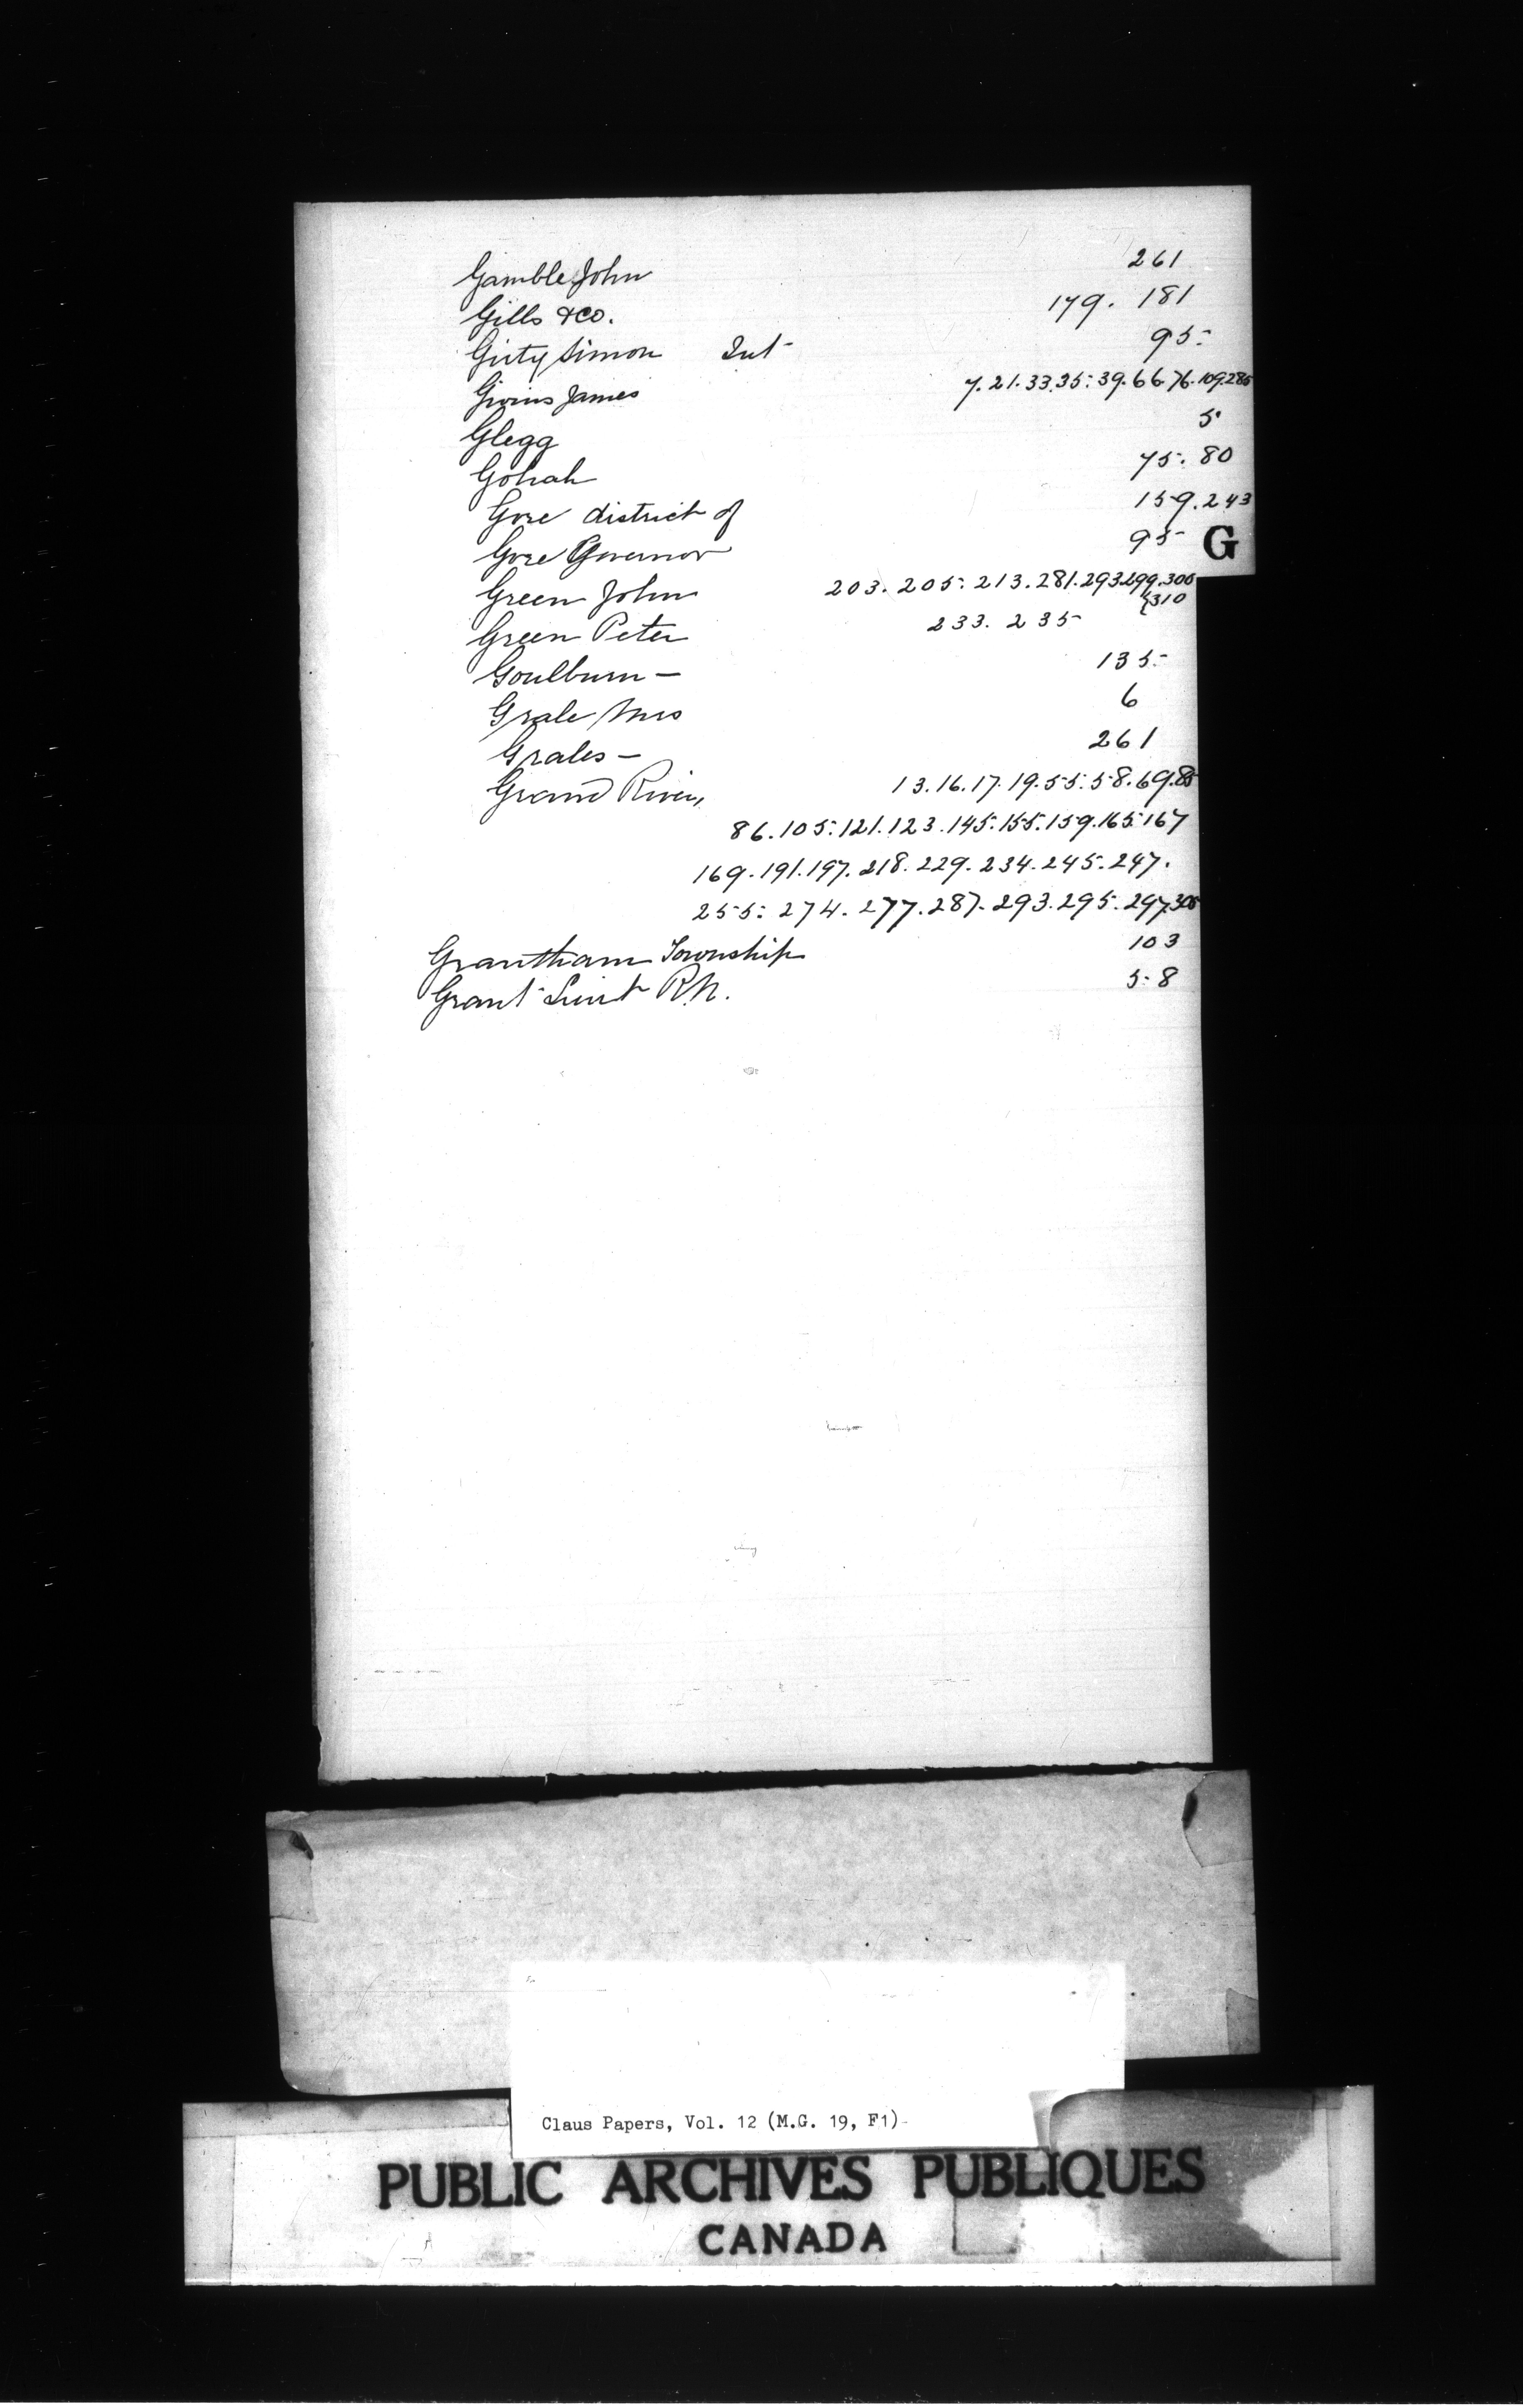 Gamble John 261
Gills & Co. 179. 181
Girty Simon Int 95.
Givins James 7. 21. 33. 35. 39. 66. 76. 109. 285
Glegg 5
Goliah 75. 80
Gore district of 159. 243
Gore Governor 95
G
Green John 203. 205. 213. 281. 293. 299. 306
310
Green Peter 233. 235
Goulburn — 135.
Grale Mrs 6
Grales — 261
Grand River, 13. 16. 17. 19. 55. 58. 69. 85
86. 105. 121. 123. 145. 155. 159. 165. 167
169. 191. 197. 218. 229. 234. 245. 247.
255. 274. 277. 287. 293. 295. 297. 305
Grantham Township 103
Grant Lieut R.N. 58
Claus Papers, Vol. 12 (M.G. 19, F1)
PUBLIC ARCHIVES PUBLIQUES
CANADA